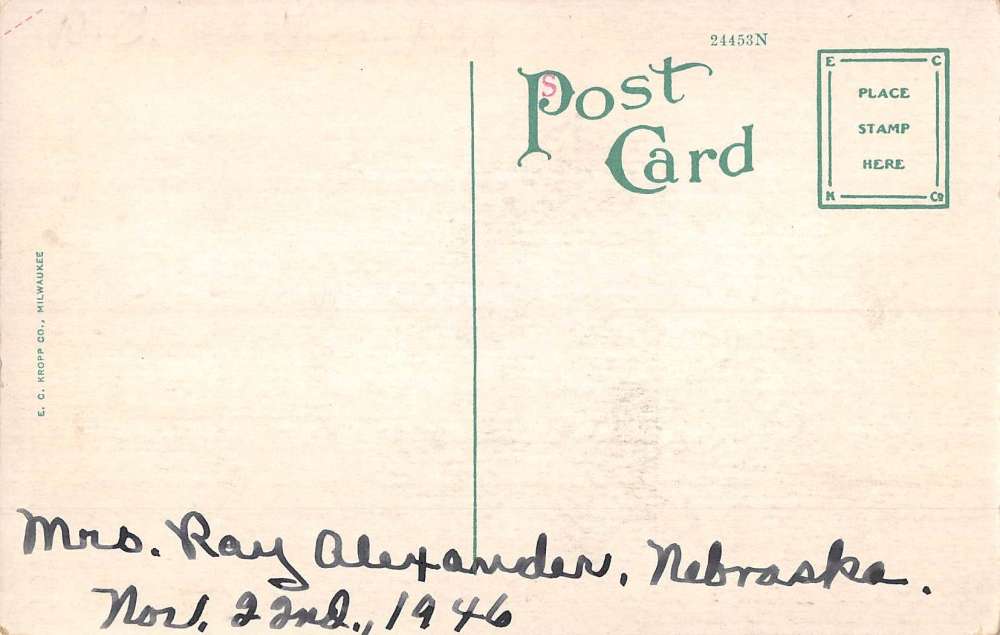 24453N
Post
Card
S
E C
PLACE
STAMP
HERE
K Co
E. C. KROPP CO., MILWAUKEE
Mrs. Ray Alexander, Nebraska.
Nov. 22nd., 1946